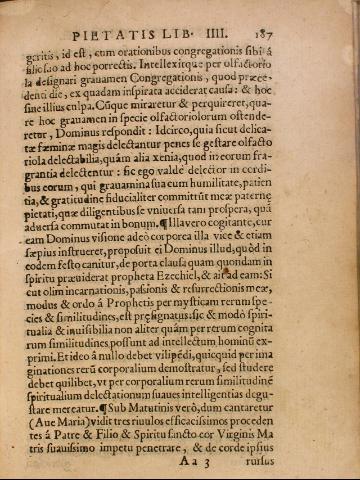 PIETATIS LIB. IIII. 187
geritis, id est, cum orationibus congregationis sibi á
filio suo ad hoc porrectis. Intellexitque per olfactorio
la designari grauamen Congregationis, quod præce-
denti die, ex quadam inspirata acciderat causa: & hoc
sine illius culpa. Cũque miraretur & perquireret, qua-
re hoc grauamen in specie olfactoriolorum ostende-
retur, Dominus respondit: Idcirco, quia sicut delica-
tæ fæminæ magis delectantur penes se gestare olfacto
riola delectabilia, quàm alia xenia, quod in eorum fra-
grantia delectentur: sic ego valdè delector in cordi-
bus eorum, qui grauamina sua cum humilitate, patien
tia, & gratitudine fiducialiter committũt meæ paternę
pietati, quæ diligentibus se vniuersa tam prospera, quā
aduersa commutat in bonum. ¶ Illa vero cogitante, cur
eam Dominus visione adeò corporea illa vice & etiam
sæpius instrueret, proposuit ei Dominus illud, quòd in
eodem festo canitur, de porta clausa quam quondam in
spiritu præuiderat propheta Ezechiel, & ait ad eam: Si
cut olim incarnationis, passionis & resurrectionis meæ,
modus & ordo á Prophetis per mysticam rerum spe-
cies & similitudines, est pręsignatus: sic & modò spiri-
tualia & inuisibilia non aliter quàm per rerum cognita
rum similitudines possunt ad intellectum hominũ ex-
primi. Et ideo â nullo debet vilipẽdi, quicquid per ima
ginationes rerũ corporalium demonstratur, sed studere
debet quilibet, vt per corporalium rerum similitudinē
spiritualium delectationum suaues intelligentias degu-
stare mereatur. ¶ Sub Matutinis verò, dum cantaretur
(Aue Maria) vidit tres riuulos efficacissimos proceden
tes á Patre & Filio & Spiritu sancto cor Virginis Ma
tris suauissimo impetu penetrare, & de corde ipsius
A a 3 rursus